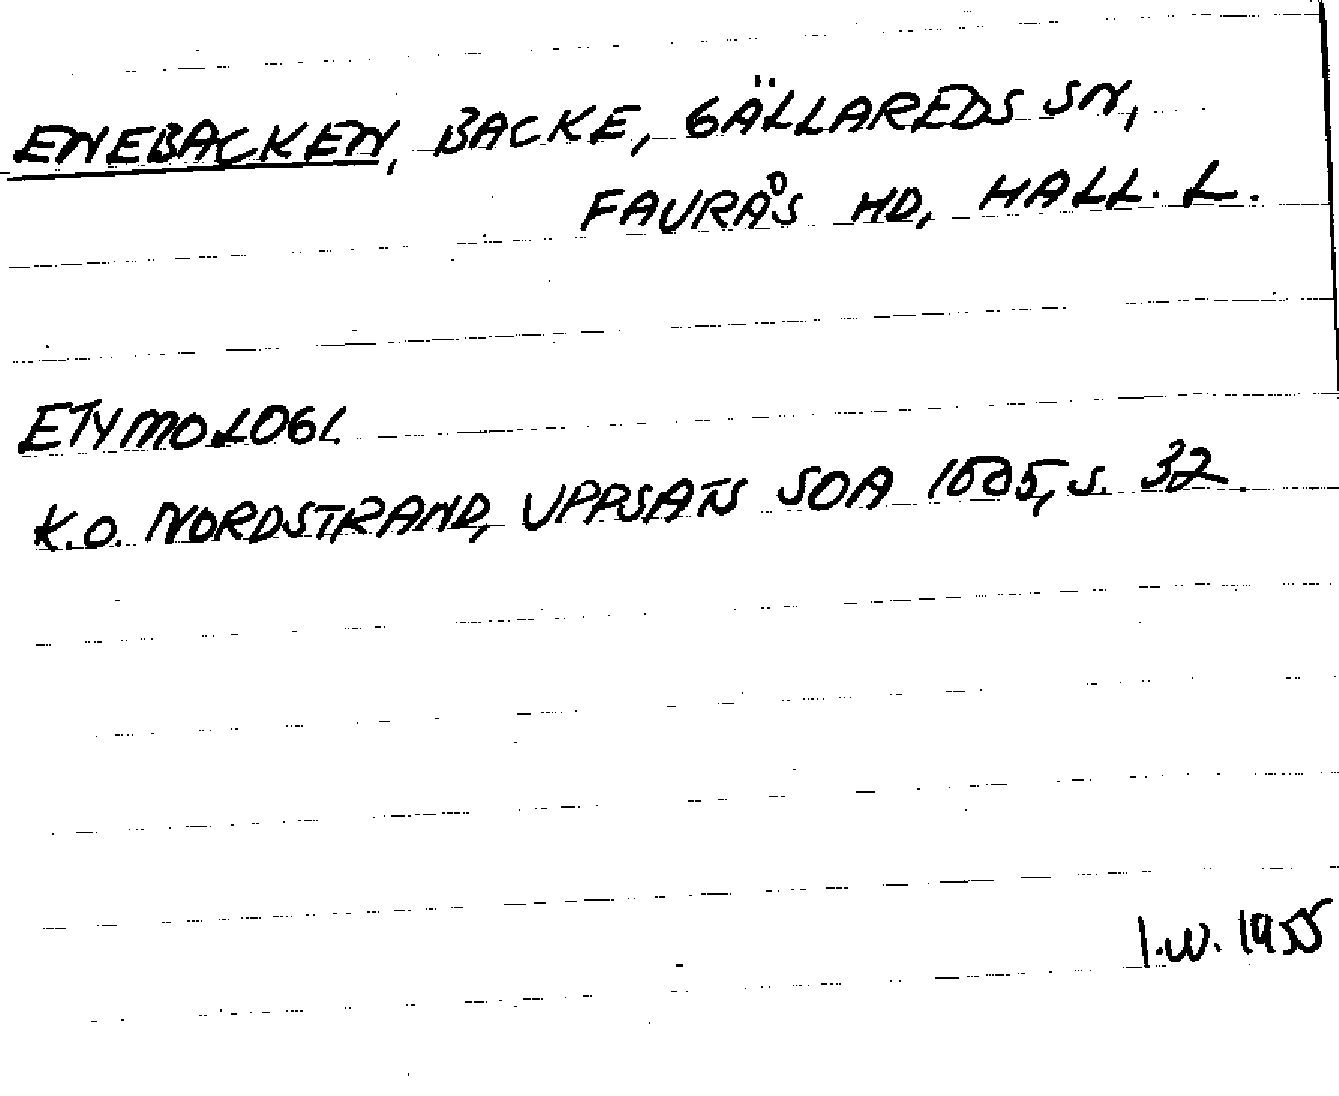 ENEBACKEN, BACKE, GÄLLAREDS SN,
FAURÅS HD, HALL. L.
ETYMOLOGI.
K.O. NORDSTRAND, UPPSATS SOA 1505, S. 32.
I.W. 1955